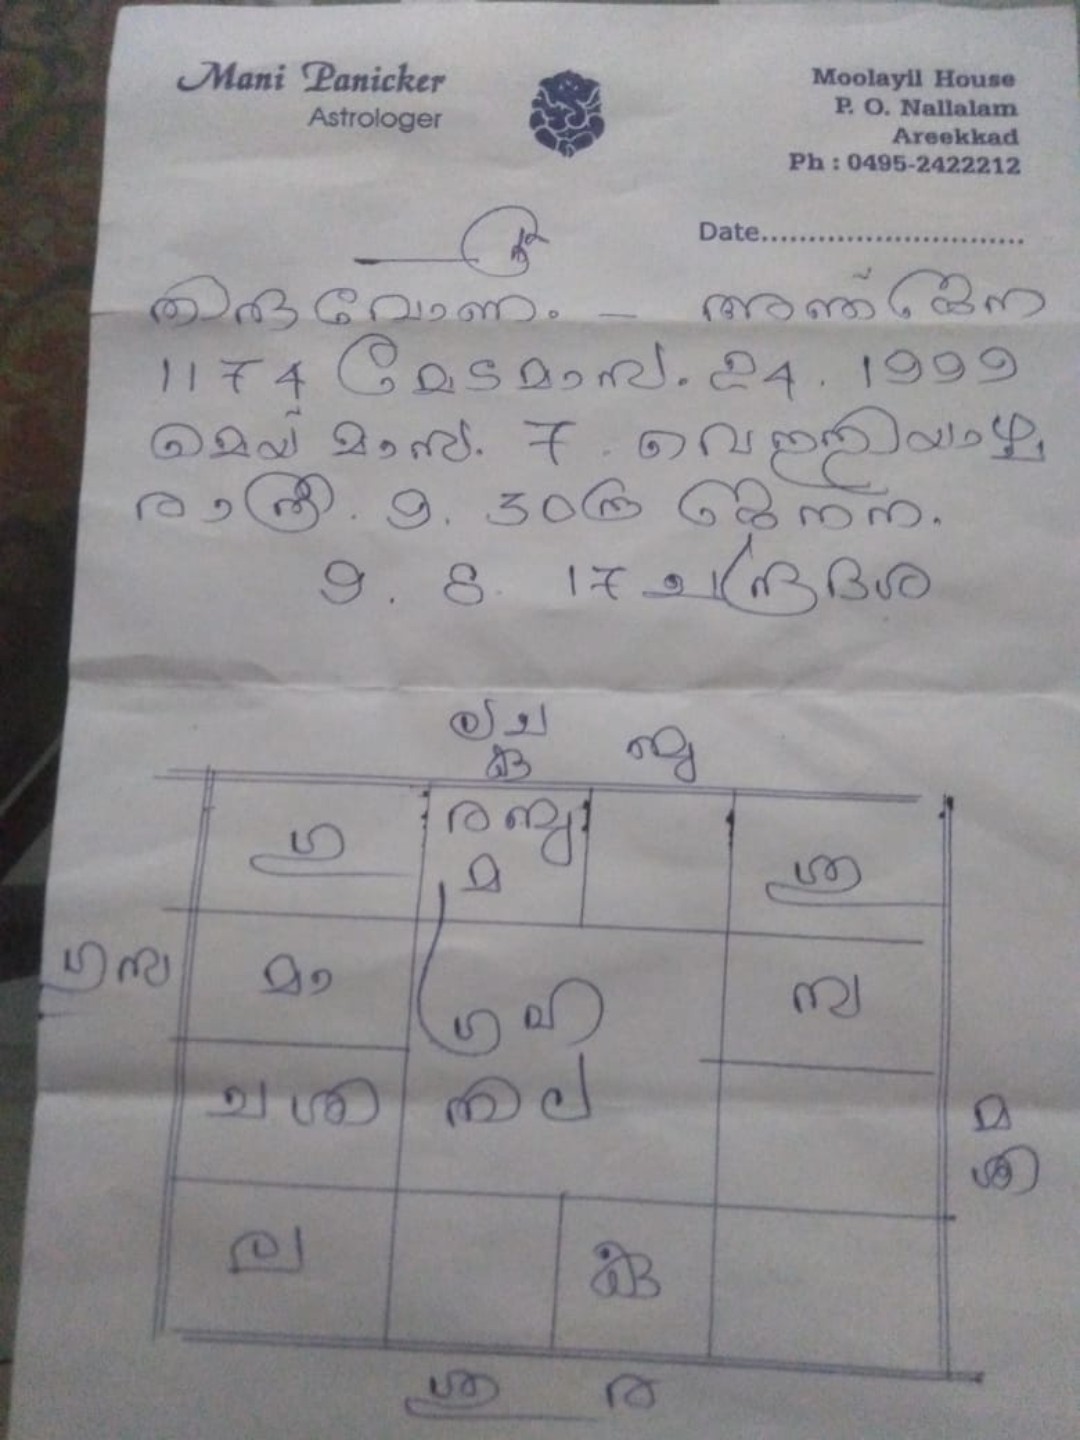 Mani Panicker
Astrologer
Moolayil House
P. O. Nallalam
Areekkad
Ph : 0495-2422212
Date............................
തിരുവോണം. —
1174 മേടമാസം. 24. 1999
മെയ് മാസം. 7. വെള്ളിയാഴ്ച
രാത്രി. 9. 30ന് ജനനം.
9. 8. 17 ചന്ദ്രദശ
ല ച
കു
ഗു
ര ബു
മ
ശു
ഗു സ
മാ
ഗ്രഹ
സ
ച ശി
നില
മ
ശി
ല
കു
ശു ര